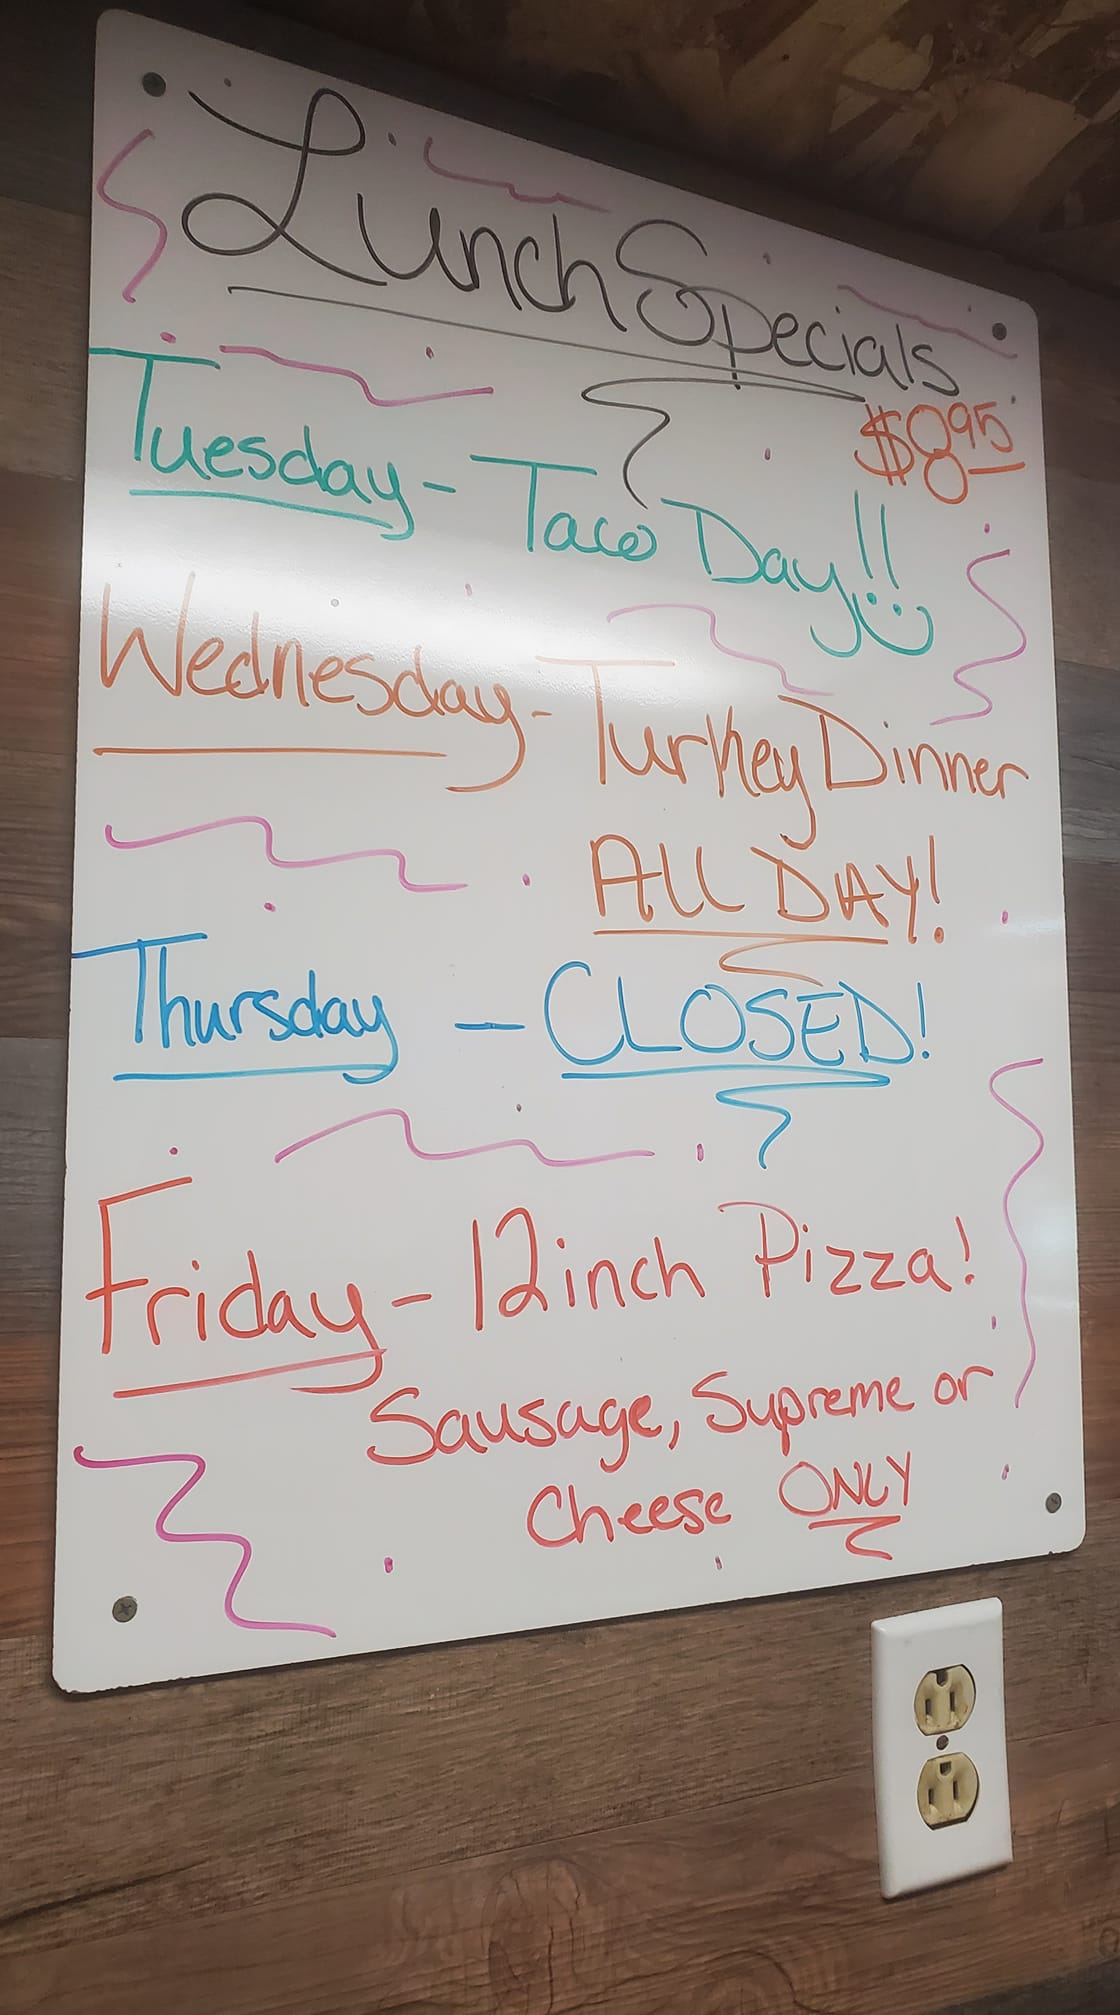 Lunch Specials
$8.95
Tuesday - Taco Day!!
Wednesday - Turkey Dinner
ALL DAY!
Thursday - CLOSED!
Friday - 12 inch Pizza!
Sausage, Supreme or
Cheese ONLY